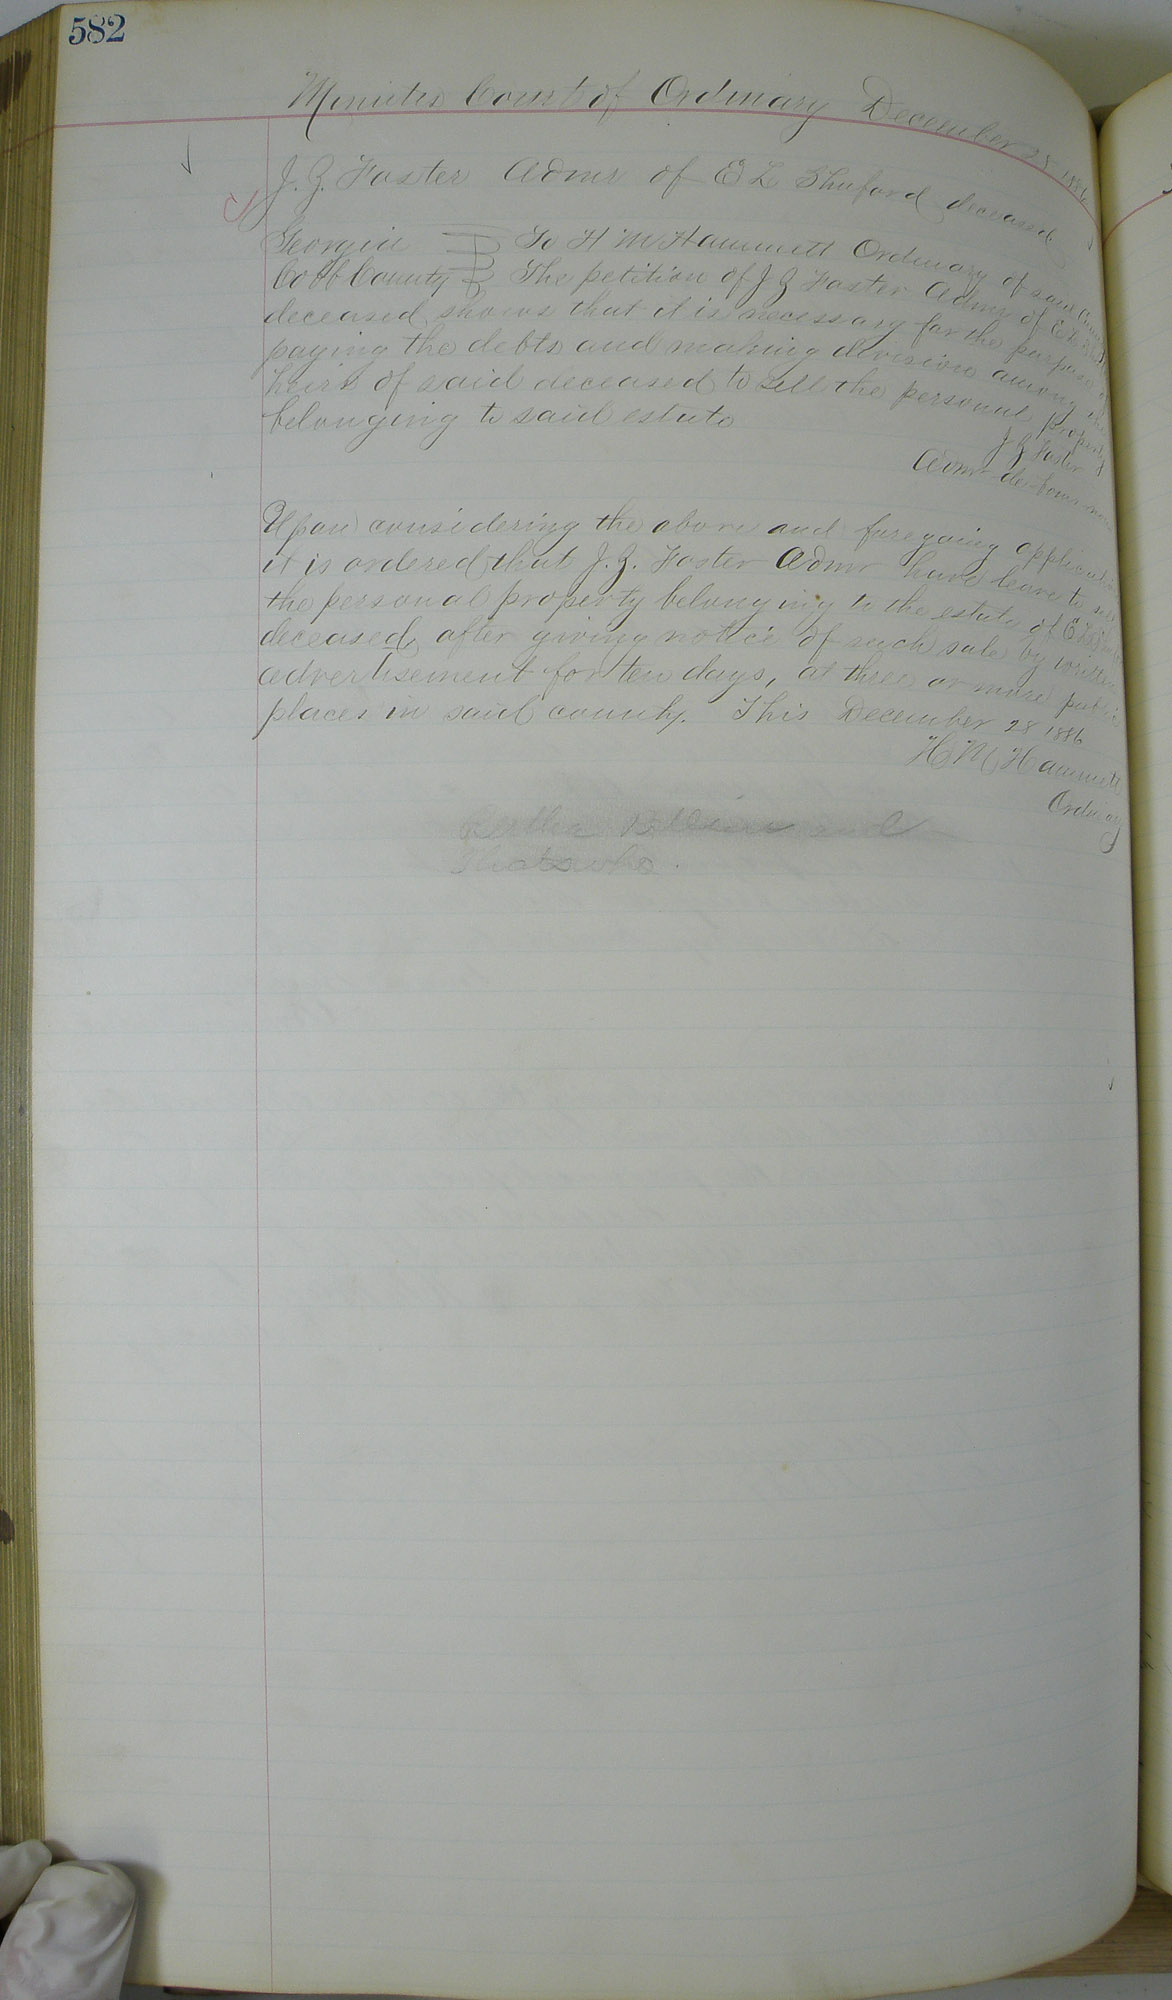 582
Minutes Court of Ordinary December 28 1886
J. Z. Foster Admr of E L Shuford deceased
Georgia To H M Hammett Ordinary of said County
Cobb County The petition of J Z Foster Admr of E L
deceased shows that it is necessary for the purpose of
paying the debts and making division among the
heirs of said deceased to sell the personal property
belonging to said estate
J Z Foster
Admr de bonis non
Upon considering the above and foregoing application
it is ordered that J. Z. Foster Admr have leave to sell
the personal property belonging to the estate of E L
deceased, after giving notice of such sale by written
advertisement for ten days, at three or more public
places in said county. This December 28 1886
H M Hammett
Ordinary